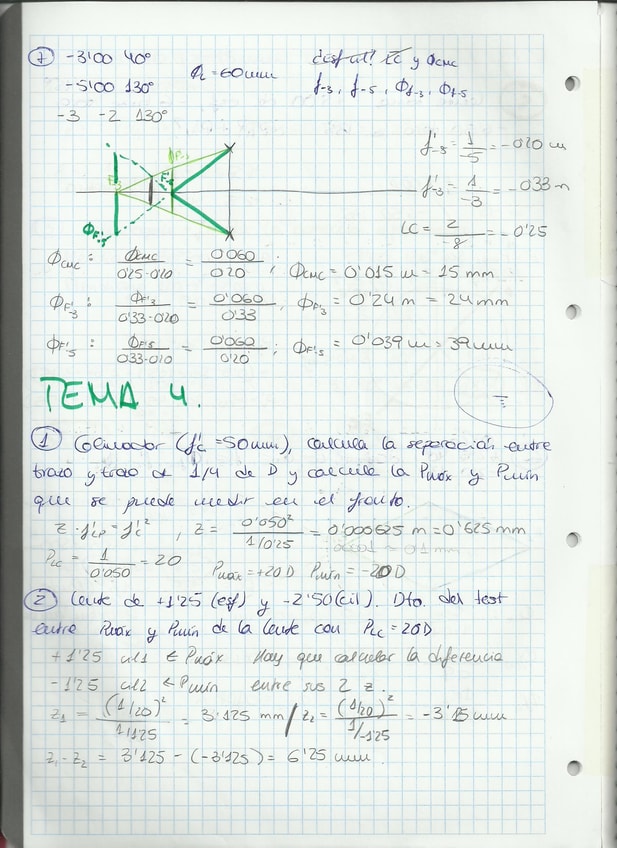 7 -3'00 40°
-5'00 130°
-3 -2 130°
ΦL = 60mm
LC y Φcmc
f-3, f-5, Φf-3, Φf-5
f'-3 = 1/-5 = -0'20 m
f'-3 = 1/-3 = -0'33 m
LC = 2/-8 = -0'25
F'-3 F'-5
ΦF'-5
Φcmc: Φcmc/0'25-0'20 = 0'060/0'20 ; Φcmc = 0'015 m = 15 mm
ΦF'-3: ΦF'-3/0'33-0'20 = 0'060/0'33 , ΦF'-3 = 0'24 m = 24mm
ΦF'-5: ΦF'-5/0'33-0'20 = 0'060/0'20 ; ΦF'-5 = 0'039 m = 39mm
TEMA 4.
1 (f'c = 50mm), calcula la separación entre
trazo y trazo de 1/4 de D y calcula la Pmáx y Pmín
que se puede medir en el fronto.
z · f'LP = f'c² , z = 0'050²/1/0'25 = 0'000625 m = 0'625 mm
PLC = 1/0'050 = 20 Pmax = +20D Pmín = -20D
2 Lente de +1'25 (esf) y -2'50 (cil). Dto. del test
entre Pmáx y Pmín de la lente con PLC = 20D
+1'25 ml1 ← Pmáx Hay que calcular la diferencia
-1'25 ml2 ← Pmín entre sus 2 z.
z1 = (1/20)²/1/1'25 = 3'125 mm / z2 = (1/20)²/1/-1'25 = -3'15 mm
z1 - z2 = 3'125 - (-3'125) = 6'25 mm.